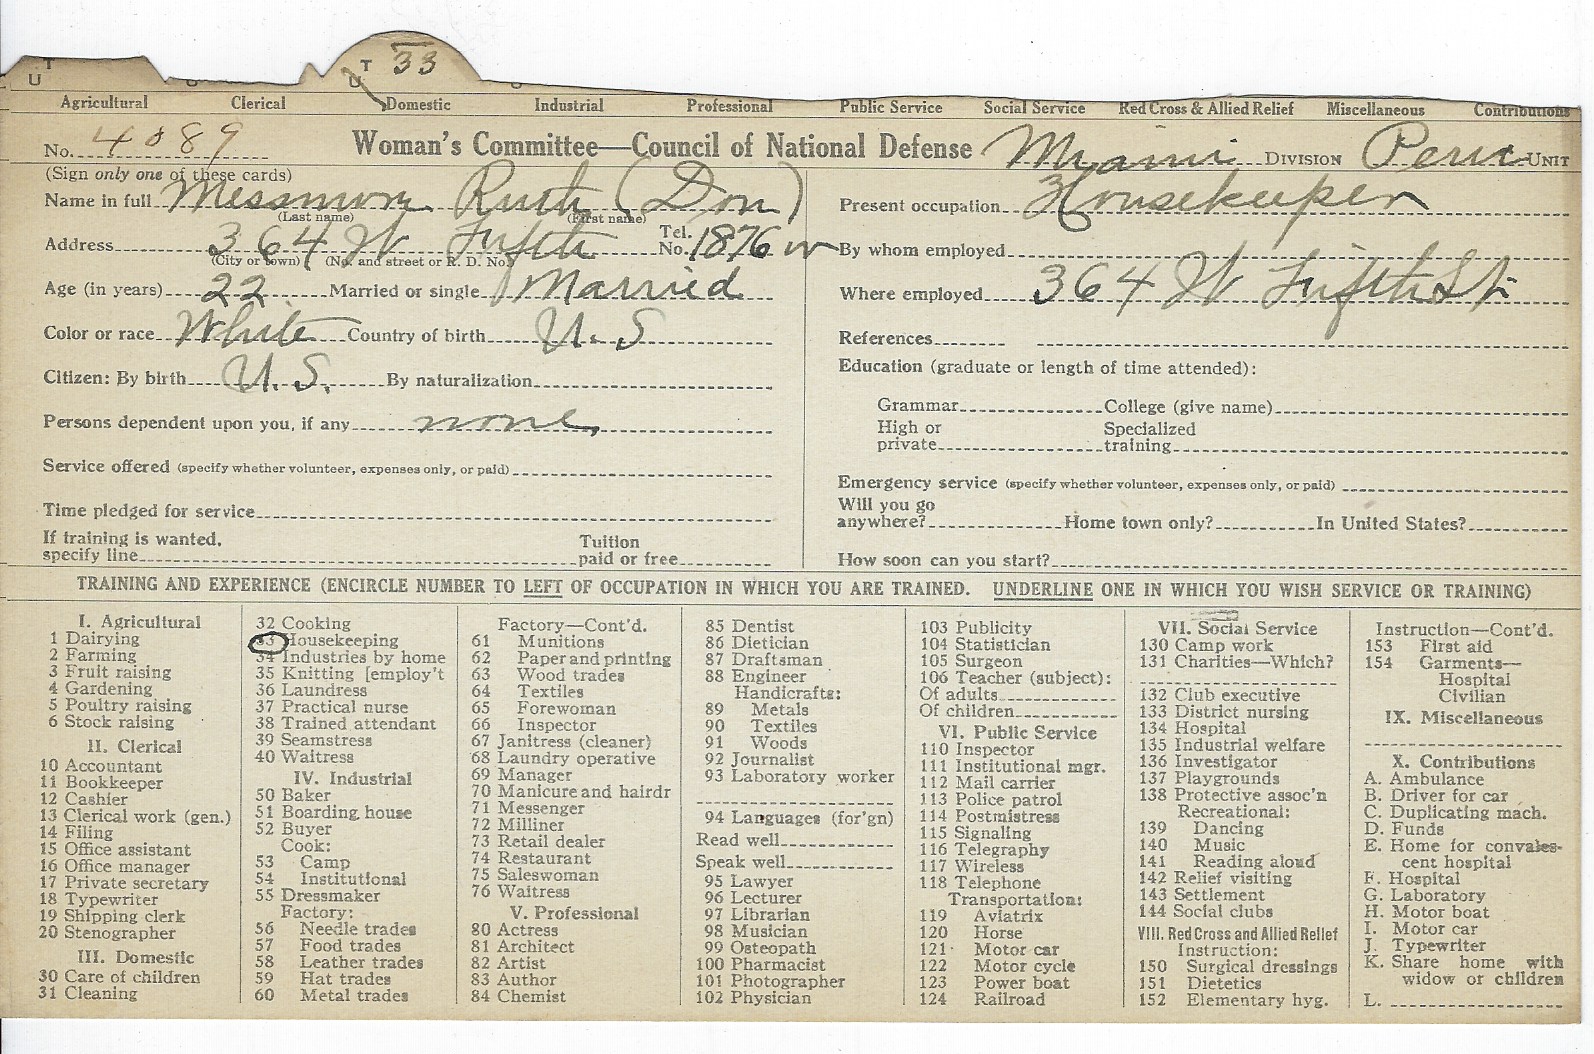 T 33
U T U
Agricultural Clerical Domestic Industrial Professional Public Service Social Service Red Cross & Allied Relief Miscellaneous Contributions
No. 4089 Woman's Committee—Council of National Defense Miami DIVISION Peru UNIT
(Sign only one of these cards)
Name in full Messmore Ruth (Don)
(Last name) (First name)
Address 364 W Fifth Tel. No. 1876 w
(City or town) (No. and street or R. D. No.)
Age (in years) 22 Married or single Married
Color or race White Country of birth U. S
Citizen: By birth U. S. By naturalization
Persons dependent upon you, if any none
Service offered (specify whether volunteer, expenses only, or paid)
Time pledged for service
If training is wanted, specify line Tuition paid or free
Present occupation Housekeeper
By whom employed
Where employed 364 W Fifth St.
References
Education (graduate or length of time attended):
Grammar College (give name)
High or private Specialized training
Emergency service (specify whether volunteer, expenses only, or paid)
Will you go anywhere? Home town only? In United States?
How soon can you start?
TRAINING AND EXPERIENCE (ENCIRCLE NUMBER TO LEFT OF OCCUPATION IN WHICH YOU ARE TRAINED. UNDERLINE ONE IN WHICH YOU WISH SERVICE OR TRAINING)
I. Agricultural
1 Dairying
2 Farming
3 Fruit raising
4 Gardening
5 Poultry raising
6 Stock raising
II. Clerical
10 Accountant
11 Bookkeeper
12 Cashier
13 Clerical work (gen.)
14 Filing
15 Office assistant
16 Office manager
17 Private secretary
18 Typewriter
19 Shipping clerk
20 Stenographer
III. Domestic
30 Care of children
31 Cleaning
32 Cooking
33 Housekeeping
34 Industries by home
35 Knitting [employ't
36 Laundress
37 Practical nurse
38 Trained attendant
39 Seamstress
40 Waitress
IV. Industrial
50 Baker
51 Boarding house
52 Buyer
Cook:
53 Camp
54 Institutional
55 Dressmaker
Factory:
56 Needle trades
57 Food trades
58 Leather trades
59 Hat trades
60 Metal trades
Factory—Cont'd.
61 Munitions
62 Paper and printing
63 Wood trades
64 Textiles
65 Forewoman
66 Inspector
67 Janitress (cleaner)
68 Laundry operative
69 Manager
70 Manicure and hairdr
71 Messenger
72 Milliner
73 Retail dealer
74 Restaurant
75 Saleswoman
76 Waitress
V. Professional
80 Actress
81 Architect
82 Artist
83 Author
84 Chemist
85 Dentist
86 Dietician
87 Draftsman
88 Engineer
Handicrafts:
89 Metals
90 Textiles
91 Woods
92 Journalist
93 Laboratory worker
94 Languages (for'gn)
Read well
Speak well
95 Lawyer
96 Lecturer
97 Librarian
98 Musician
99 Osteopath
100 Pharmacist
101 Photographer
102 Physician
103 Publicity
104 Statistician
105 Surgeon
106 Teacher (subject):
Of adults
Of children
VI. Public Service
110 Inspector
111 Institutional mgr.
112 Mail carrier
113 Police patrol
114 Postmistress
115 Signaling
116 Telegraphy
117 Wireless
118 Telephone
Transportation:
119 Aviatrix
120 Horse
121 Motor car
122 Motor cycle
123 Power boat
124 Railroad
VII. Social Service
130 Camp work
131 Charities—Which?
132 Club executive
133 District nursing
134 Hospital
135 Industrial welfare
136 Investigator
137 Playgrounds
138 Protective assoc'n
Recreational:
139 Dancing
140 Music
141 Reading aloud
142 Relief visiting
143 Settlement
144 Social clubs
VIII. Red Cross and Allied Relief
Instruction:
150 Surgical dressings
151 Dietetics
152 Elementary hyg.
Instruction—Cont'd.
153 First aid
154 Garments—
Hospital
Civilian
IX. Miscellaneous
X. Contributions
A. Ambulance
B. Driver for car
C. Duplicating mach.
D. Funds
E. Home for convales-
cent hospital
F. Hospital
G. Laboratory
H. Motor boat
I. Motor car
J. Typewriter
K. Share home with
widow or children
L.